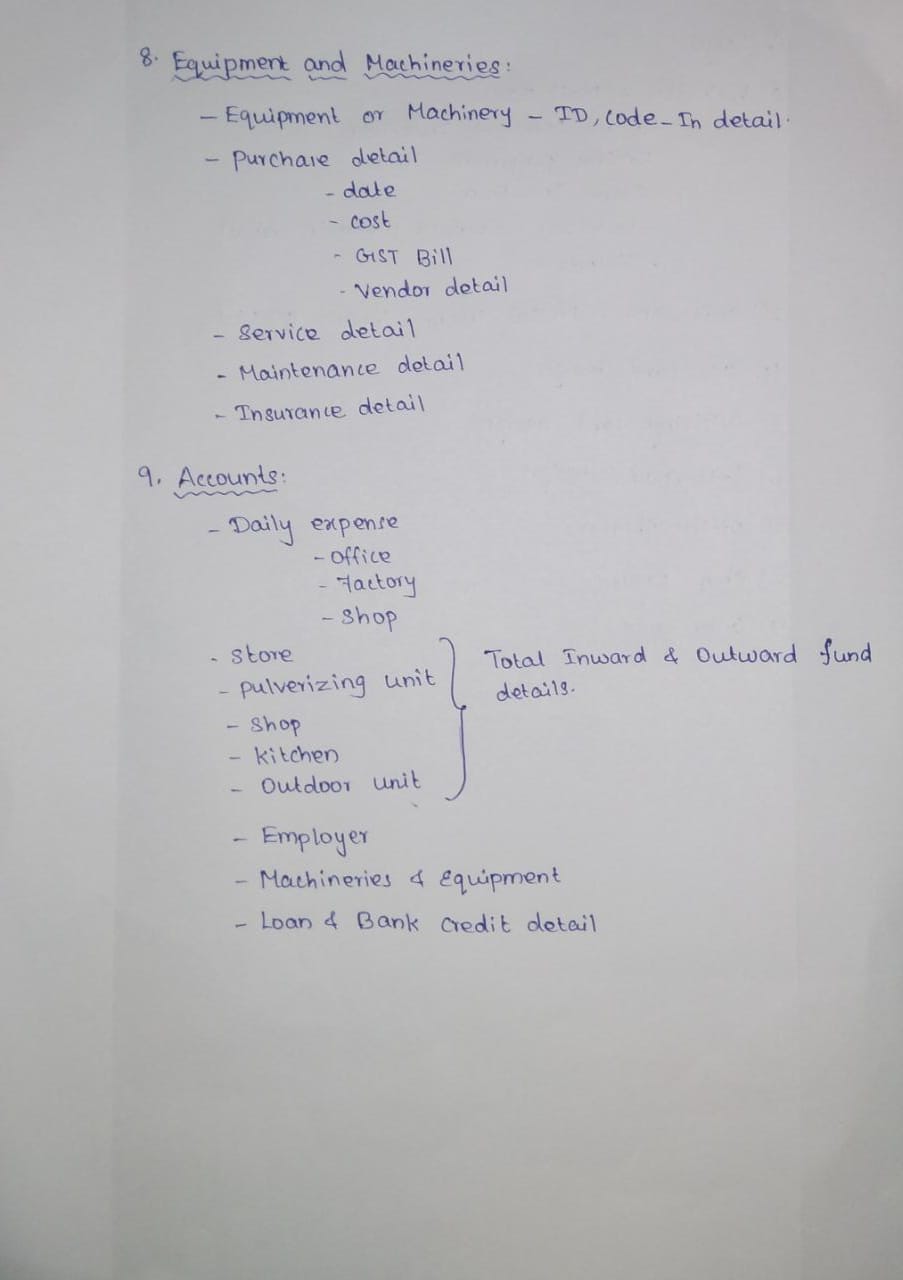 8. Equipment and Machineries:
- Equipment or Machinery - ID, Code - In detail.
- Purchase detail
- date
- cost
- GST Bill
- Vendor detail
- Service detail
- Maintenance detail
- Insurance detail
9. Accounts:
- Daily expense
- Office
- Factory
- Shop
- Store
- Pulverizing unit
Total Inward & Outward fund
details.
- Shop
- Kitchen
- Outdoor unit
- Employer
- Machineries & Equipment
- Loan & Bank Credit detail